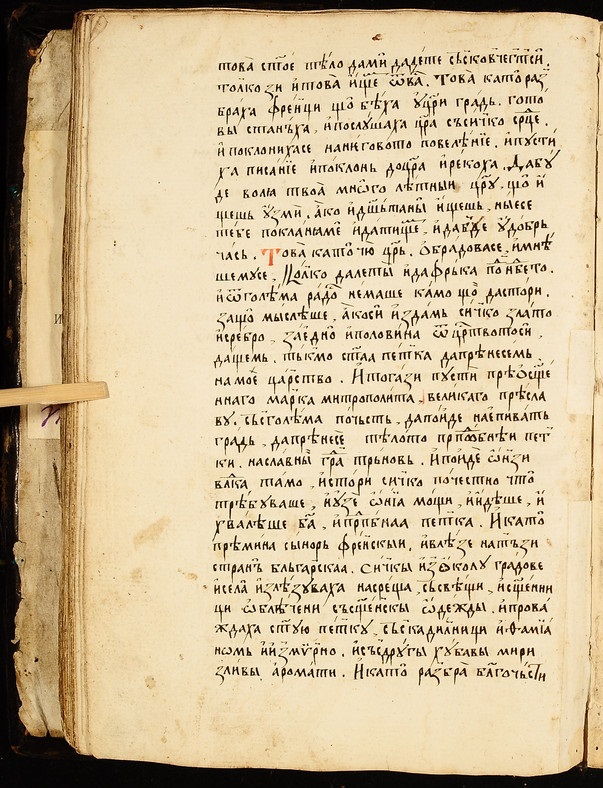 това ст҃ое тѣло дами дадете съсковчегѡтсѝ.
толкози и҆това̀ и҆ще ѿва̀. Това като раз
браха френци що бѣха ꙋцр҃и градь. гото
вы станѣха, и҆послꙋшаха цр҃а съсичко срц҃е.
и҆ поклонихасе нанеговото повелѣнїе. и҆пꙋсти
ха писанїе и҆поклонь доцр҃а и҆рекоха. Дабꙋ
де волꙗ твоа̀ мно́го лѣтныи цр҃ꙋ. що и҆
щешь ꙋ҆зми. а҆ко и҆дш҃ѣтаны и҆щешь. ныесе
тебе покланꙗме и҆датище, и҆дабꙋде ꙋ҆добрь
чась. Това като чю цр҃ь. ѡбрадовасе. имнѣ
шемꙋсе, Цолко далеты и҆дафрька пон҃бето.
и҆ѿголѣма радо немаше камо що дастори.
защо мыслѣше, а҆коси и҆здамь сичко злато
и҆сребро, заедно и҆половина ѿцр҃твотоси,
дащемь. тькмо ст҃аа петка дапрѣнесемь.
на мое царство. И тогази пꙋсти прѣѡсще
ннаго марка митрополита, великаго прѣсла
вꙋ. съсголѣма почьсть, дапоиде наепиватъ
градь, дапрѣнесе тѣлото прпⷣобнѣи пет
ки. наславны гра҃ трьновь. И поиде ѡнзи
влⷣка тамо, и҆стори сичко почестно что
трѣбꙋваше, и҆ꙋзе ѡнїа мощи, и҆идѣше, и҆
хвалѣше ба҃, и҆прпⷣбнаа петка. И като
прѣмина сыноръ френскыи, и҆влѣзе натъзи
странъ бльгарскаа. сичкы и҆зѡколꙋ градове
и҆села и҆злѣзꙋваха насреща, съсвѣщи, и҆сщ҃енни
ци ѡблѣчени съсщ҃енскы ѡдежды. и҆прова
ждаха ст҃ꙋю петкꙋ, съскадилници и҆ ѳ҆амїа
номь и҆измѵрно. и҆съсдрꙋгы хꙋбавы мири
зливы аромати. И като разбра бл҃гочьсти